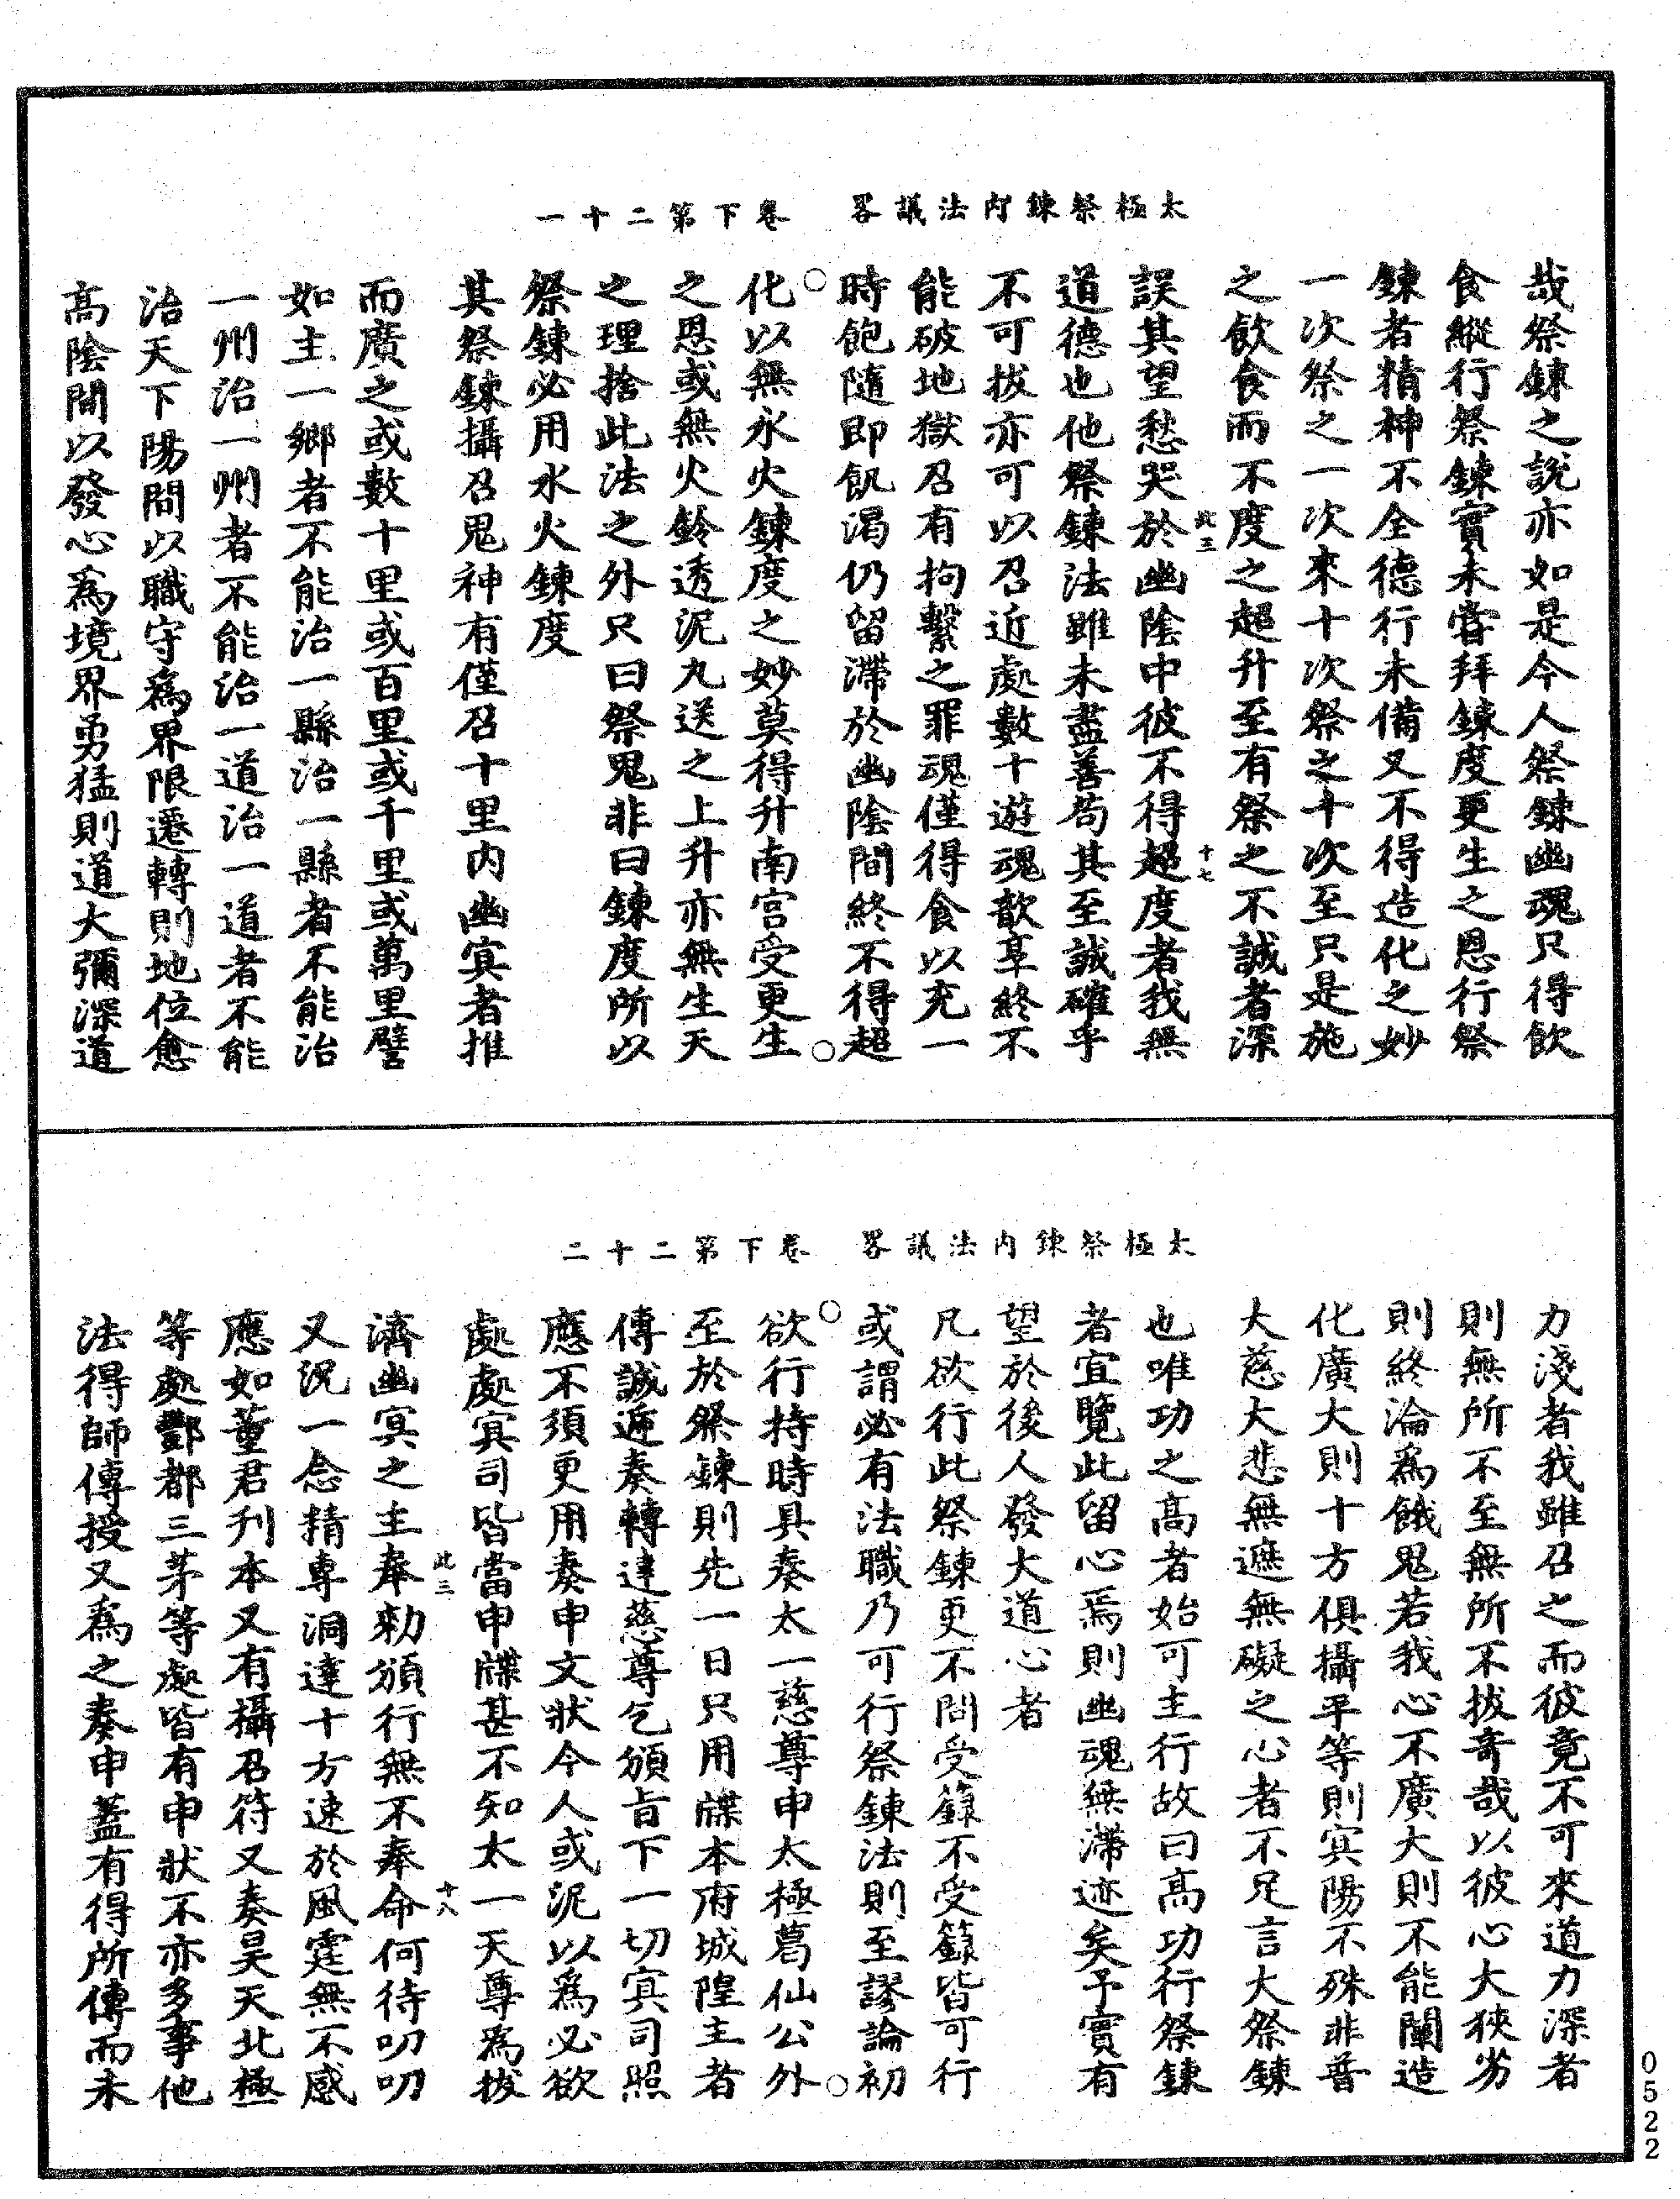 太極祭鍊内法議畧　卷下第二十一
哉祭鍊之說亦如是今人祭鍊幽魂只得飲
食縱行祭鍊實未嘗拜鍊度更生之恩行祭
鍊者精神不全德行未備又不得造化之妙
一次祭之一次來十次祭之十次至只是施
之飲食而不度之超升至有祭之不誠者深
誤其望愁哭於幽陰中彼不得超度者我無
此三
十七
道德也他祭鍊法雖未盡善苟其至誠確乎
不可拔亦可以召近處數十遊魂歆享終不
能破地獄召有拘繫之罪魂僅得食以充一
時飽隨即飢渴仍留滯於幽陰間終不得超
○化以無水火鍊度之妙莫得升南宮受更生○
之恩或無火鈴透泥丸送之上升亦無生天
之理捨此法之外只曰祭鬼非曰鍊度所以
祭鍊必用水火鍊度
其祭鍊攝召鬼神有僅召十里内幽冥者推
而廣之或數十里或百里或千里或萬里譬
如主一鄉者不能治一縣治一縣者不能治
一州治一州者不能治一道治一道者不能
治天下陽間以職守爲界限遷轉則地位愈
高陰間以發心爲境界勇猛則道大彌深道
太極祭鍊内法議畧　卷下第二十二
力淺者我雖召之而彼竟不可來道力深者
則無所不至無所不拔奇哉以彼心大狹劣
則終淪爲餓鬼若我心不廣大則不能闡造
化廣大則十方俱攝平等則冥陽不殊非普
大慈大悲無遮無礙之心者不足言大祭鍊
也唯功之高者始可主行故曰高功行祭鍊
者宜覽此留心焉則幽魂無滯迹矣予實有
望於後人發大道心者
凡欲行此祭鍊更不問受籙不受籙皆可行
或謂必有法職乃可行祭鍊法則至謬論初
○欲行持時具奏太一慈尊申太極葛仙公外○
至於祭鍊則先一日只用牒本府城隍主者
傳誠遞奏轉達慈尊乞頒旨下一切冥司照
應不須更用奏申文狀今人或泥以爲必欲
處處冥司皆當申牒甚不知太一天尊爲拔
此三
十八
濟幽冥之主奉勑頒行無不奉命何待叨叨
又況一念精專洞達十方速於風霆無不感
應如董君刋本又有攝召符又奏昊天北極
等處酆都三茅等處皆有申狀不亦多事他
法得師傳授又爲之奏申蓋有得所傳而未
0522